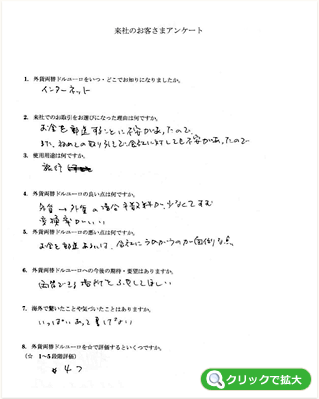 来社のお客さまアンケート
1. 外貨両替ドルユーロをいつ・どこでお知りになりましたか。
インターネット
2. 来社でのお取引をお選びになった理由は何ですか。
お金を郵送することに不安があったので
また、初めての取り引きで会社に対しても不安があったので
3. 使用用途は何ですか。
旅行
4. 外貨両替ドルユーロの良い点は何ですか。
外貨→外貨の場合手数料が少なくてすむ
交換率がいい
5. 外貨両替ドルユーロの悪い点は何ですか。
お金を郵送あるいは、会社にうかがうのが面倒な点
6. 外貨両替ドルユーロへの今後の期待・要望はありますか。
両替できる場所をふやしてほしい
7. 海外で驚いたことや気づいたことはありますか。
いっぱいあって書けない
8. 外貨両替ドルユーロを☆で評価するといくつですか。
(☆ 1~5段階評価)
4つ
クリックで拡大